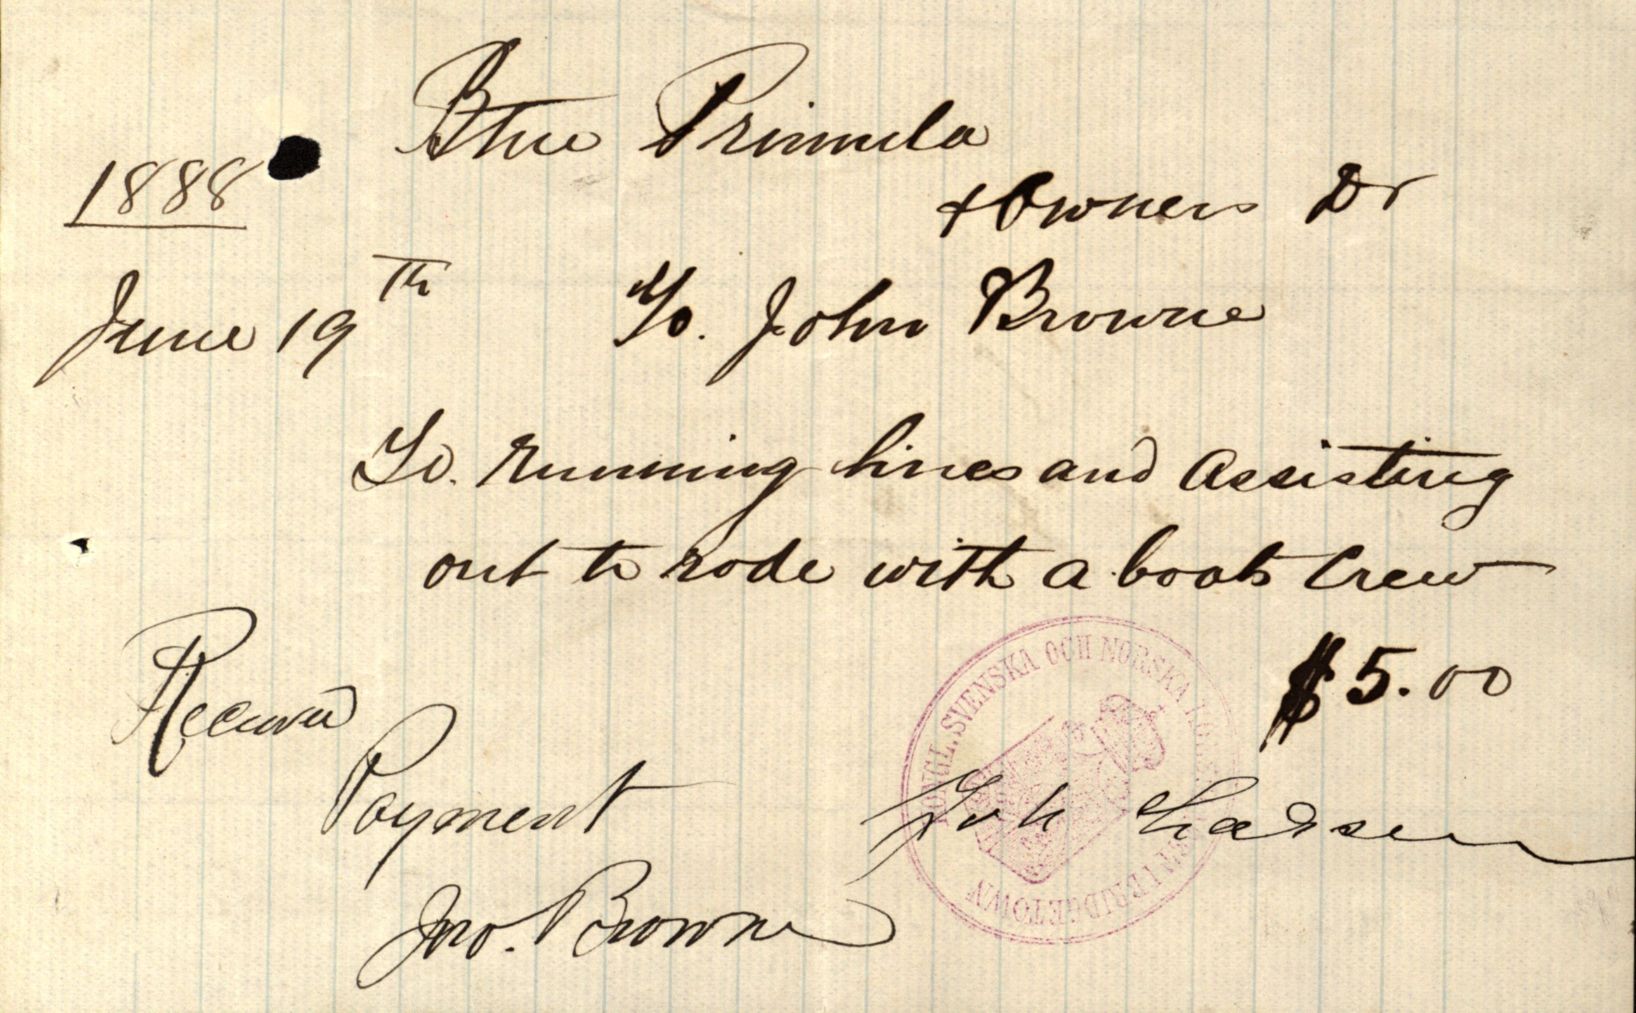 Btne Primula
& Owners Dr
1888
June 19th To. John Browne
To. running lines and assisting
out to rode with a boats crew
$5.00
Received
Payment
Jno. Browne
Joh Larsen
KONGL. SVENSKA OCH NORSKA
BRIDGETOWN